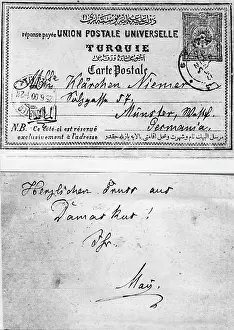 réponse payée
UNION POSTALE UNIVERSELLE
TURQUIE
Carte Postale
Klärchen Niemer
Salzgasse 57
Münster, Westf.
Germania.
N.B. Ce côté-ci est réservé
exclusivement à l'adresse
Herzlichen Gruss aus
Damaskus!
Ihr
May.